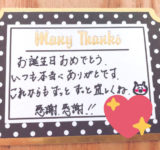 Many Thanks
お誕生日おめでとう。
いつも本当にありがとです。
これからもずっとずっと宜しくね。
感謝感謝!!